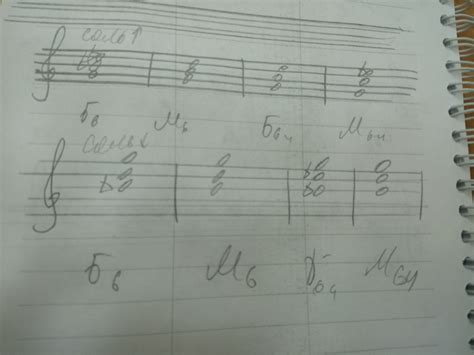 соль↑
Б6 М6 Б64 М64
соль↓
Б6 М6 Б64 М64